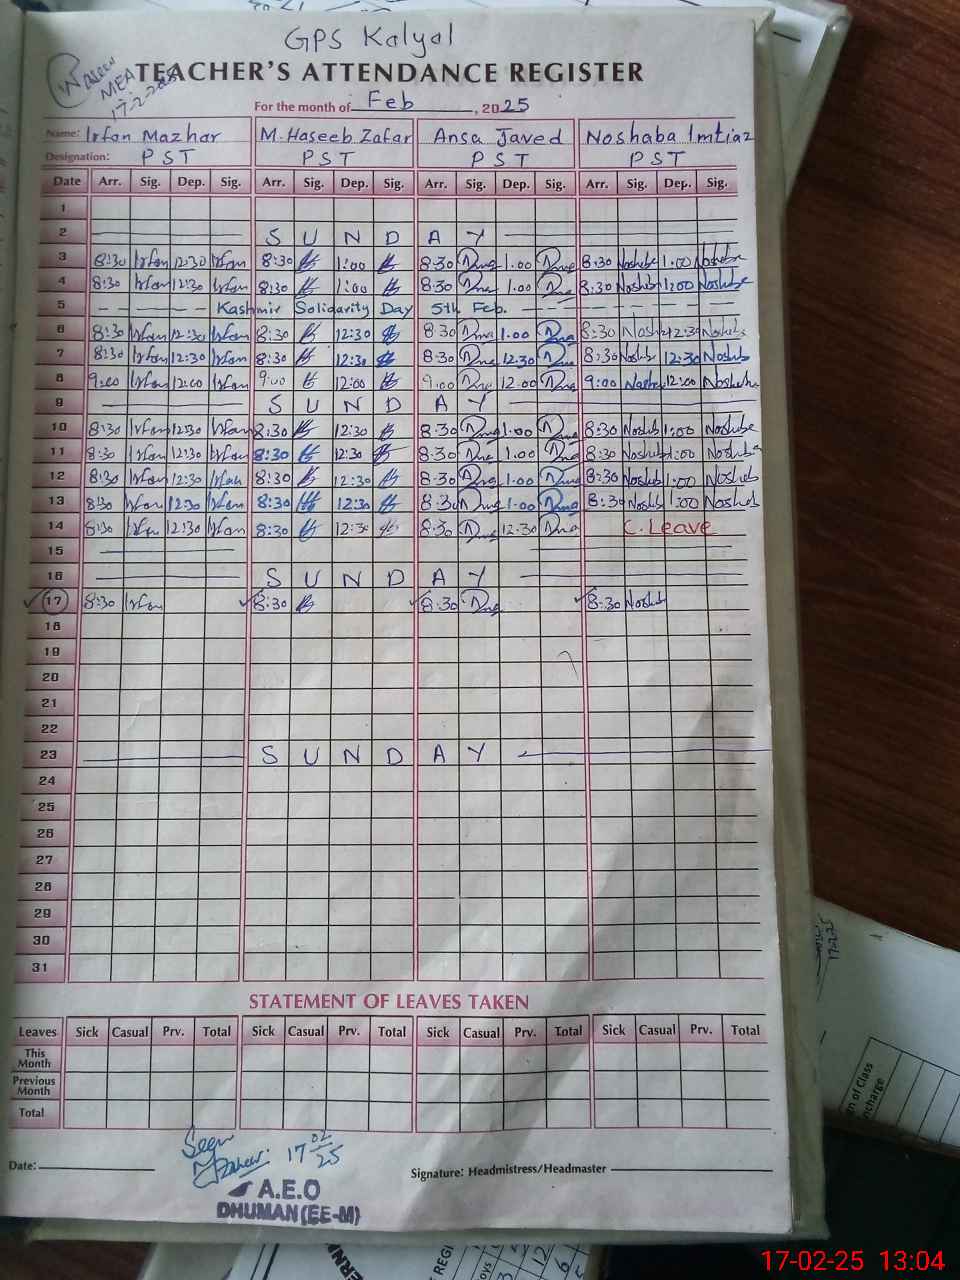 GPS Kalyal
Waseem
MEA
17-2-2025
TEACHER'S ATTENDANCE REGISTER
For the month of Feb, 2025
Name: Irfan Mazhar M. Haseeb Zafar Ansa Javed Noshaba Imtiaz
Designation: PST PST PST PST
Date Arr. Sig. Dep. Sig. Arr. Sig. Dep. Sig. Arr. Sig. Dep. Sig. Arr. Sig. Dep. Sig.
1
2 SUNDAY
3 8:30 Irfan 12:30 Irfan 8:30 1:00 8:30 1.00 8:30 Noshaba 1:00 Noshaba
4 8:30 Irfan 12:30 Irfan 8:30 1:00 8:30 1.00 8:30 Noshab 1:00 Noshabe
5 Kashmir Solidarity Day 5th Feb.
6 8:30 Irfan 12:30 Irfan 8:30 12:30 8:30 1.00 8:30 Nosha 12:30 Noshab
7 8:30 Irfan 12:30 Irfan 8:30 12:30 8:30 12.30 8:30 Noshab 12:30 Noshab
8 9:00 Irfan 12:00 Irfan 9:00 12:00 9.00 12.00 9:00 Noshab 12:00 Noshab
9 SUNDAY
10 8:30 Irfan 12:30 Irfan 8:30 12:30 8:30 1.00 8:30 Noshab 1:00 Noshabe
11 8:30 Irfan 12:30 Irfan 8:30 12:30 8:30 1.00 8:30 Noshab 1:00 Noshaba
12 8:30 Irfan 12:30 Irfan 8:30 12:30 8:30 1.00 8:30 Noshab 1:00 Noshab
13 8:30 Irfan 12:30 Irfan 8:30 12:30 8:30 1.00 8:30 Noshab 1:00 Noshab
14 8:30 Irfan 12:30 Irfan 8:30 12:30 8:30 12.30 C. Leave
15
16 SUNDAY
17 8:30 Irfan 8:30 8:30 8:30 Noshab
18
19
20
21
22
23 SUNDAY
24
25
26
27
28
29
30
31
STATEMENT OF LEAVES TAKEN
Leaves Sick Casual Prv. Total Sick Casual Prv. Total Sick Casual Prv. Total Sick Casual Prv. Total
This Month
Previous Month
Total
Seen
17 02/25
Date: Signature: Headmistress/Headmaster
A.E.O
DHUMAN (EE-M)
17-02-25 13:04